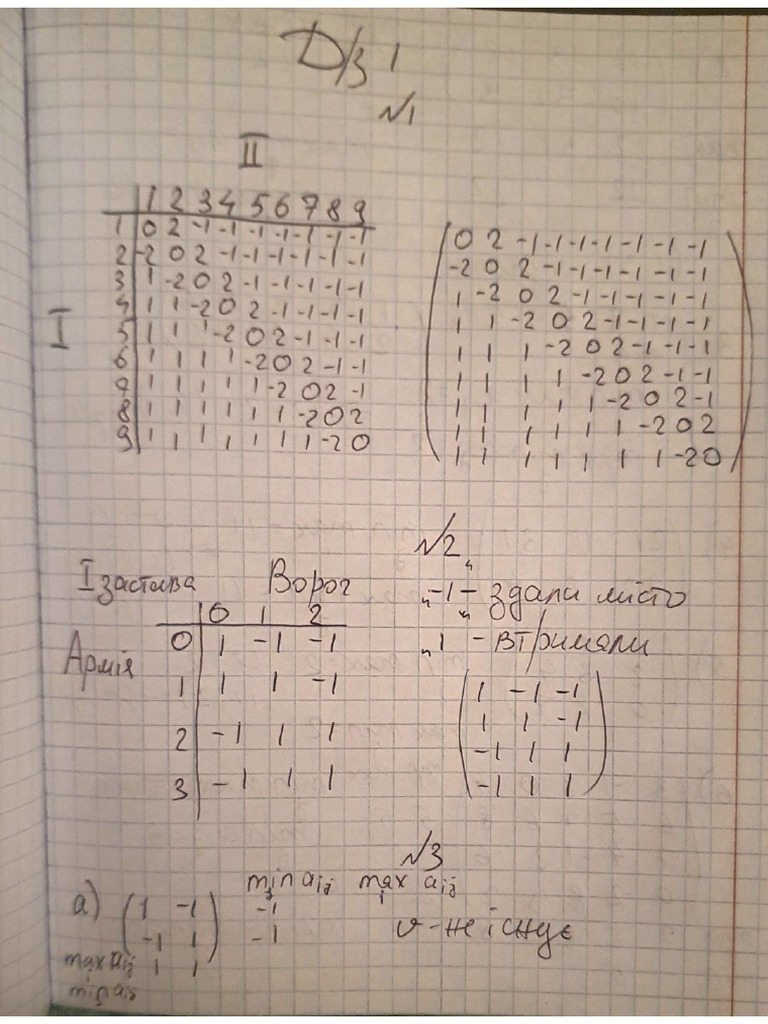 Д/з 1
№1
II
1 2 3 4 5 6 7 8 9
I
1 0 2 -1 -1 -1 -1 -1 -1 -1
2 -2 0 2 -1 -1 -1 -1 -1 -1
3 1 -2 0 2 -1 -1 -1 -1 -1
4 1 1 -2 0 2 -1 -1 -1 -1
5 1 1 1 -2 0 2 -1 -1 -1
6 1 1 1 1 -2 0 2 -1 -1
9 1 1 1 1 1 -2 0 2 -1
8 1 1 1 1 1 1 -2 0 2
9 1 1 1 1 1 1 1 -2 0
0 2 -1 -1 -1 -1 -1 -1 -1
-2 0 2 -1 -1 -1 -1 -1 -1
1 -2 0 2 -1 -1 -1 -1 -1
1 1 -2 0 2 -1 -1 -1 -1
1 1 1 -2 0 2 -1 -1 -1
1 1 1 1 -2 0 2 -1 -1
1 1 1 1 1 -2 0 2 -1
1 1 1 1 1 1 -2 0 2
1 1 1 1 1 1 1 -2 0
№2
I застава Ворог
0 1 2
Армія
0 1 -1 -1
1 1 1 -1
2 -1 1 1
3 -1 1 1
„-1" - здали місто
„1" - втримали
1 -1 -1
1 1 -1
-1 1 1
-1 1 1
№3
min aij max aij
j i
а) (1 -1) -1
(-1 1) -1 v - не існує
max aij 1 1
min aij